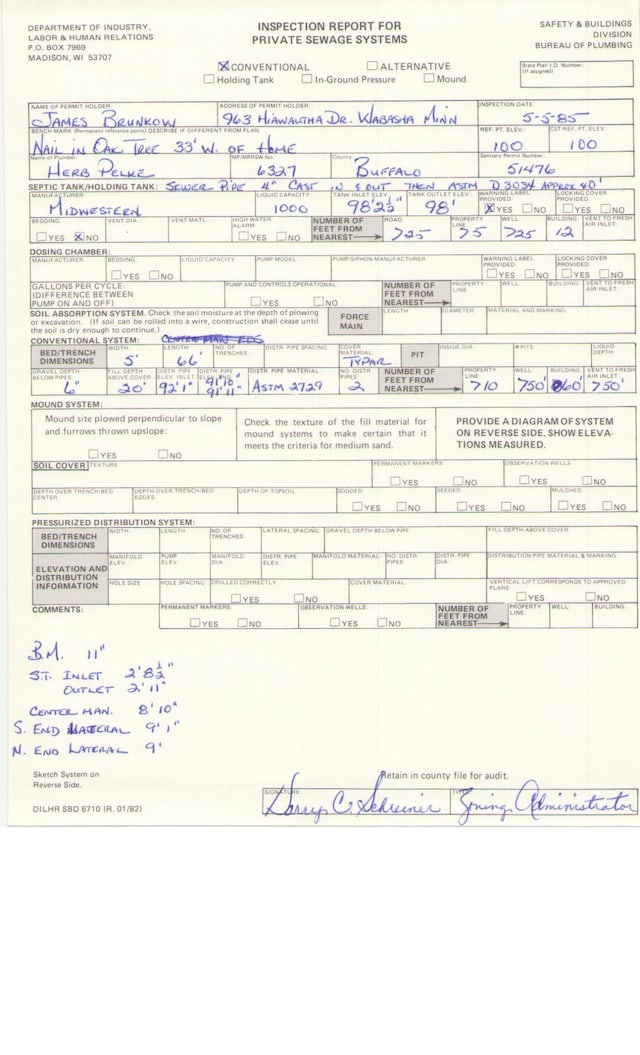 DEPARTMENT OF INDUSTRY,
LABOR & HUMAN RELATIONS
P.O. BOX 7969
MADISON, WI 53707
INSPECTION REPORT FOR
PRIVATE SEWAGE SYSTEMS
SAFETY & BUILDINGS
DIVISION
BUREAU OF PLUMBING
☒CONVENTIONAL ☐ALTERNATIVE
☐Holding Tank ☐In-Ground Pressure ☐Mound
State Plan I.D. Number:
(If assigned)
NAME OF PERMIT HOLDER: ADDRESS OF PERMIT HOLDER: INSPECTION DATE:
JAMES BRUNKOW 963 HIAWAUTHA DR. WABASHA MINN 5-5-85
BENCH MARK (Permanent reference point) DESCRIBE IF DIFFERENT FROM PLAN. REF. PT. ELEV. CST REF. PT. ELEV
NAIL IN OAK TREE 33' W. OF HOME 100 100
Name of Plumber: MP/MPRSW No. County: Sanitary Permit Number:
HERB PELKE 6327 BUFFALO 51476
SEPTIC TANK/HOLDING TANK: SEWER PIPE 4" CAST IN & OUT THEN ASTM D3034 APPROX 40'
MANUFACTURER LIQUID CAPACITY TANK INLET ELEV. TANK OUTLET ELEV. WARNING LABEL PROVIDED: LOCKING COVER PROVIDED:
MIDWESTERN 1000 98'2½" 98' ☒YES ☐NO ☐YES ☐NO
BEDDING: VENT DIA. VENT MATL. HIGH WATER ALARM NUMBER OF FEET FROM NEAREST ROAD: PROPERTY LINE: WELL: BUILDING: VENT TO FRESH AIR INLET:
☐YES ☒NO ☐YES ☐NO >25 >5 >25 12
DOSING CHAMBER:
MANUFACTURER: BEDDING: LIQUID CAPACITY PUMP MODEL PUMP/SIPHON MANUFACTURER WARNING LABEL PROVIDED: LOCKING COVER PROVIDED:
☐YES ☐NO ☐YES ☐NO ☐YES ☐NO
GALLONS PER CYCLE: (DIFFERENCE BETWEEN PUMP ON AND OFF) PUMP AND CONTROLS OPERATIONAL NUMBER OF FEET FROM NEAREST PROPERTY LINE WELL BUILDING VENT TO FRESH AIR INLET:
☐YES ☐NO
SOIL ABSORPTION SYSTEM. Check the soil moisture at the depth of plowing
or excavation. (If soil can be rolled into a wire, construction shall cease until
the soil is dry enough to continue.)
FORCE MAIN LENGTH DIAMETER MATERIAL AND MARKING
CONVENTIONAL SYSTEM:
BED/TRENCH DIMENSIONS WIDTH LENGTH NO. OF TRENCHES DISTR. PIPE SPACING COVER MATERIAL: PIT INSIDE DIA #PITS LIQUID DEPTH
5' 66' TYPAR
GRAVEL DEPTH BELOW PIPES FILL DEPTH ABOVE COVER DISTR. PIPE ELEV. INLET DISTR. PIPE ELEV. END DISTR. PIPE MATERIAL NO. DISTR PIPES NUMBER OF FEET FROM NEAREST PROPERTY LINE: WELL: BUILDING: VENT TO FRESH AIR INLET:
6" 20" 92'1" 91'10" 91'11" ASTM 2729 2 >10 >50' 60' >50'
MOUND SYSTEM:
Mound site plowed perpendicular to slope
and furrows thrown upslope:
☐YES ☐NO
Check the texture of the fill material for
mound systems to make certain that it
meets the criteria for medium sand.
PROVIDE A DIAGRAM OF SYSTEM
ON REVERSE SIDE. SHOW ELEVA-
TIONS MEASURED.
SOIL COVER TEXTURE PERMANENT MARKERS OBSERVATION WELLS
☐YES ☐NO ☐YES ☐NO
DEPTH OVER TRENCH/BED CENTER DEPTH OVER TRENCH/BED EDGES DEPTH OF TOPSOIL SODDED SEEDED MULCHED
☐YES ☐NO ☐YES ☐NO ☐YES ☐NO
PRESSURIZED DISTRIBUTION SYSTEM:
BED/TRENCH DIMENSIONS WIDTH LENGTH NO. OF TRENCHES LATERAL SPACING GRAVEL DEPTH BELOW PIPE FILL DEPTH ABOVE COVER
ELEVATION AND DISTRIBUTION INFORMATION MANIFOLD ELEV. PUMP ELEV. MANIFOLD DIA. DISTR. PIPE ELEV. MANIFOLD MATERIAL NO. DISTR PIPES DISTR. PIPE DIA.: DISTRIBUTION PIPE MATERIAL & MARKING
HOLE SIZE HOLE SPACING DRILLED CORRECTLY COVER MATERIAL VERTICAL LIFT CORRESPONDS TO APPROVED PLANS
☐YES ☐NO ☐YES ☐NO
COMMENTS: PERMANENT MARKERS: OBSERVATION WELLS: NUMBER OF FEET FROM NEAREST PROPERTY LINE: WELL: BUILDING:
☐YES ☐NO ☐YES ☐NO
B.M. 11"
S.T. INLET 2'8½"
OUTLET 2'11"
CENTER MAN. 8'10"
S. END LATERAL 9'1"
N. END LATERAL 9'
Sketch System on
Reverse Side.
Retain in county file for audit.
SIGNATURE: TITLE:
Harry C. Schreiner Zoning Administrator
DILHR SBD 6710 (R. 01/82)